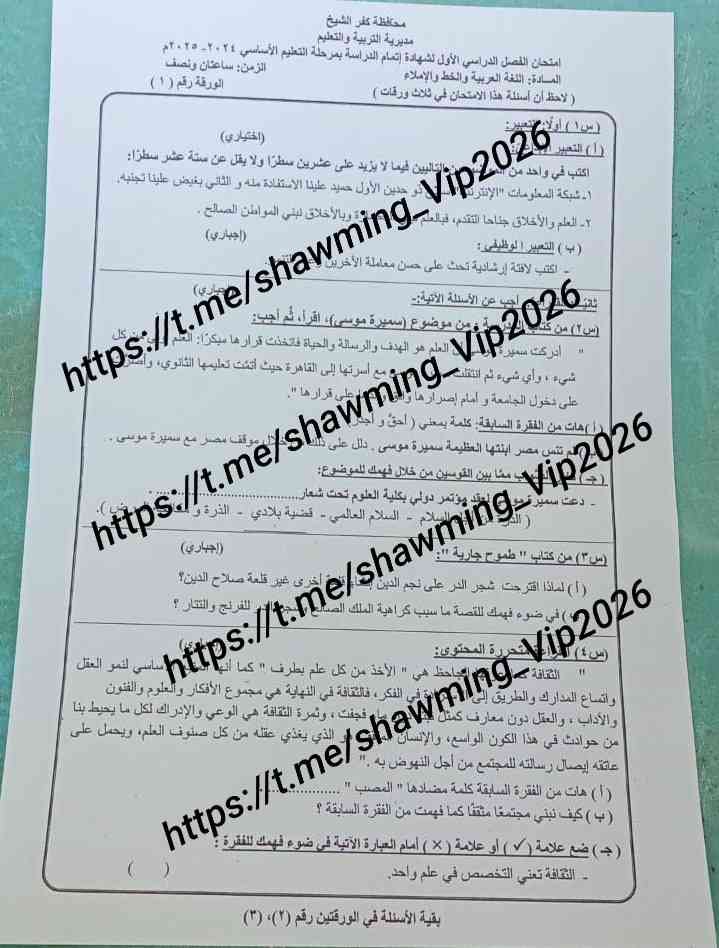 محافظة كفر الشيخ
مديرية التربية والتعليم
امتحان الفصل الدراسي الأول لشهادة إتمام الدراسة بمرحلة التعليم الأساسي ٢٠٢٤-٢٠٢٥م
المادة: اللغة العربية والخط والإملاء الزمن: ساعتان ونصف
( لاحظ أن أسئلة هذا الامتحان في ثلاث ورقات ) الورقة رقم ( ١ )
(س١) أولًا: التعبير:
(أ) التعبير (اختياري)
اكتب في واحد من التاليين فيما لا يزيد على عشرين سطرًا ولا يقل عن ستة عشر سطرًا:
١- شبكة المعلومات "الإنترنت ذو حدين الأول حميد علينا الاستفادة منه و الثاني بغيض علينا تجنبه.
٢- العلم والأخلاق جناحا التقدم، فبالعلم وبالأخلاق نبني المواطن الصالح .
(ب) التعبير الوظيفي: (إجباري)
- اكتب لافتة إرشادية تحث على حسن معاملة الآخرين
أجب عن الأسئلة الآتية:-
(س٢) من من موضوع (سميرة موسى)، اقرأ، ثم أجب: (إجباري)
" أدركت سميرة العلم هو الهدف والرسالة والحياة فاتخذت قرارها مبكرًا: العلم كل
شيء ، وأي شيء ثم انتقلت مع أسرتها إلى القاهرة حيث أتمت تعليمها الثانوي،
على دخول الجامعة و أمام إصرارها على قرارها ".
(أ) هات من الفقرة السابقة: كلمة بمعنى ( أحق و
تنس مصر ابنتها العظيمة سميرة موسى . دلل على ذلك موقف مصر مع سميرة موسى .
(جـ) مما بين القوسين من خلال فهمك للموضوع:
- دعت سميرة لعقد مؤتمر دولي بكلية العلوم تحت شعار..............................
( السلام - السلام العالمي - قضية بلادي - الذرة ).
(س٣) من كتاب " طموح جارية ": (إجباري)
(أ) لماذا اقترحت شجر الدر على نجم الدين أخرى غير قلعة صلاح الدين؟
في ضوء فهمك للقصة ما سبب كراهية الملك الصالح للفرنج والتتار ؟
(س٤) متحررة المحتوى:
" الثقافة الجاحظ هي " الأخذ من كل علم بطرف " كما لنمو العقل
واتساع المدارك والطريق إلى في الفكر، فالثقافة في النهاية هي مجموع الأفكار والعلوم والفنون
والآداب ، والعقل دون معارف كمثل فجفت ، وثمرة الثقافة هي الوعي والإدراك لكل ما يحيط بنا
من حوادث في هذا الكون الواسع، والإنسان الذي يغذي عقله من كل صنوف العلم، ويحمل على
عاتقه إيصال رسالته للمجتمع من أجل النهوض به ."
(أ) هات من الفقرة السابقة كلمة مضادها " المصب " ....................
(ب) كيف نبني مجتمعًا مثقفًا كما فهمت من الفقرة السابقة ؟
(جـ) ضع علامة (✓) أو علامة (×) أمام العبارة الآتية في ضوء فهمك للفقرة :
- الثقافة تعني التخصص في علم واحد. ( )
بقية الأسئلة في الورقتين رقم (٢)، (٣)
https://t.me/shawming_Vip2026
https://t.me/shawming_Vip2026
https://t.me/shawming_Vip2026
https://t.me/shawming_Vip2026